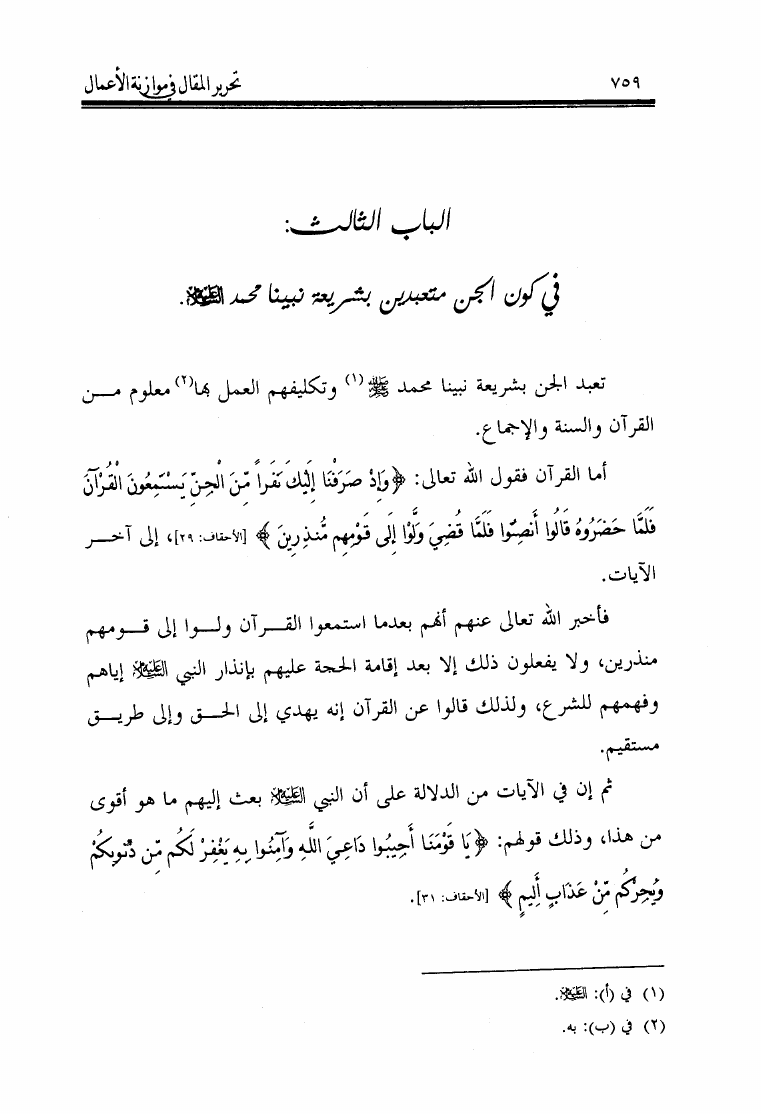 تحرير المقال في موازنة الأعمال ٧٥٩
الباب الثالث:
في كون الجن متعبدين بشريعة نبينا محمد .
تعبد الجن بشريعة نبينا محمد ﷺ(١) وتكليفهم العمل بها(٢) معلوم مــن
القرآن والسنة والإجماع.
أما القرآن فقول الله تعالى: ﴿وَإِذْ صَرَفْنَا إِلَيْكَ نَفَراً مِّنَ الْجِنِّ يَسْتَمِعُونَ الْقُرْآنَ
فَلَمَّا حَضَرُوهُ قَالُوا أَنصِتُوا فَلَمَّا قُضِيَ وَلَّوْا إِلَى قَوْمِهِم مُّنذِرِينَ ﴾ [الأحقاف: ٢٩]، إلى آخــر
الآيات.
فأخبر الله تعالى عنهم أنهم بعدما استمعوا القــرآن ولــوا إلى قــومهم
منذرين، ولا يفعلون ذلك إلا بعد إقامة الحجة عليهم بإنذار النبي إياهم
وفهمهم للشرع، ولذلك قالوا عن القرآن إنه يهدي إلى الحــق وإلى طريــق
مستقيم.
ثم إن في الآيات من الدلالة على أن النبي بعث إليهم ما هو أقوى
من هذا، وذلك قولهم: ﴿يَا قَوْمَنَا أَجِيبُوا دَاعِيَ اللَّهِ وَآمِنُوا بِهِ يَغْفِرْ لَكُم مِّن ذُنُوبِكُمْ
وَيُجِرْكُم مِّنْ عَذَابٍ أَلِيمٍ ﴾ [الأحقاف: ٣١].
(١) في (أ): .
(٢) في (ب): به.